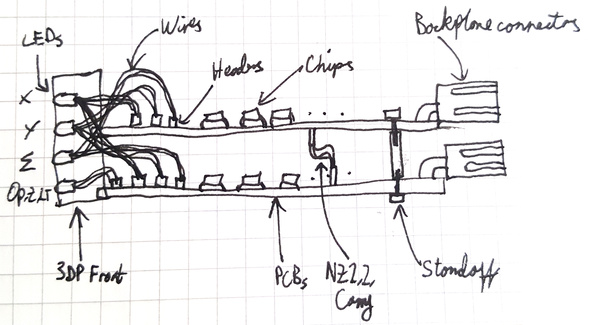 LEDs
Wires
Backplane connectors
Headers
Chips
X
Y
Σ
3DP Front
PCBs
NZ1,2,
Carry
Standoff